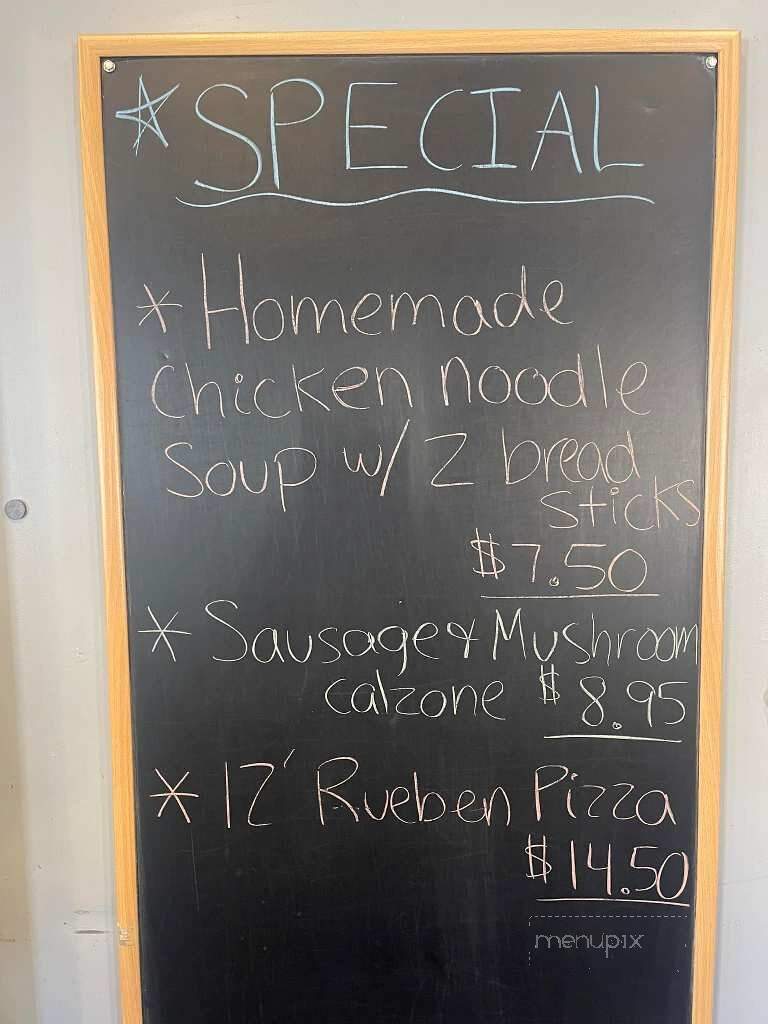 ☆ SPECIAL
* Homemade
chicken noodle
Soup w/ 2 bread
sticks
$7.50
* Sausage & Mushroom
calzone $8.95
* 12' Rueben Pizza
$14.50
menupix